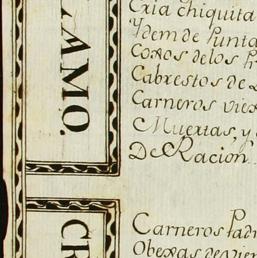 LAMO.
Cria chiquita
Ydem de Punta
Cojos delos
Cabrestos de
Carneros viex
Muertas, y
De Racion.
CR
Carneros Padr
Obexas de vien